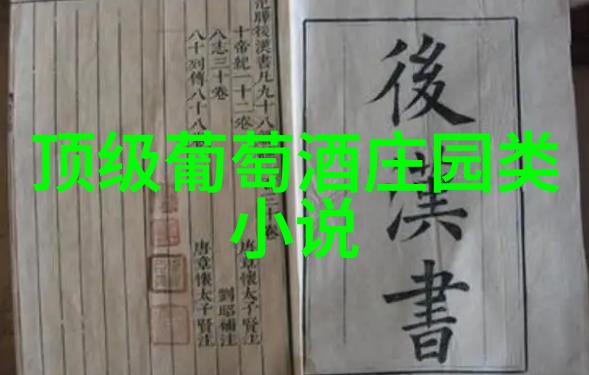 顶级葡萄酒庄园类
小说
後漢書
曄後漢書凡九十八
十帝紀一十二卷
唐章懷太子賢注
八志三十卷
劉昭補注
八十列傳八十八
唐章懷太子賢注